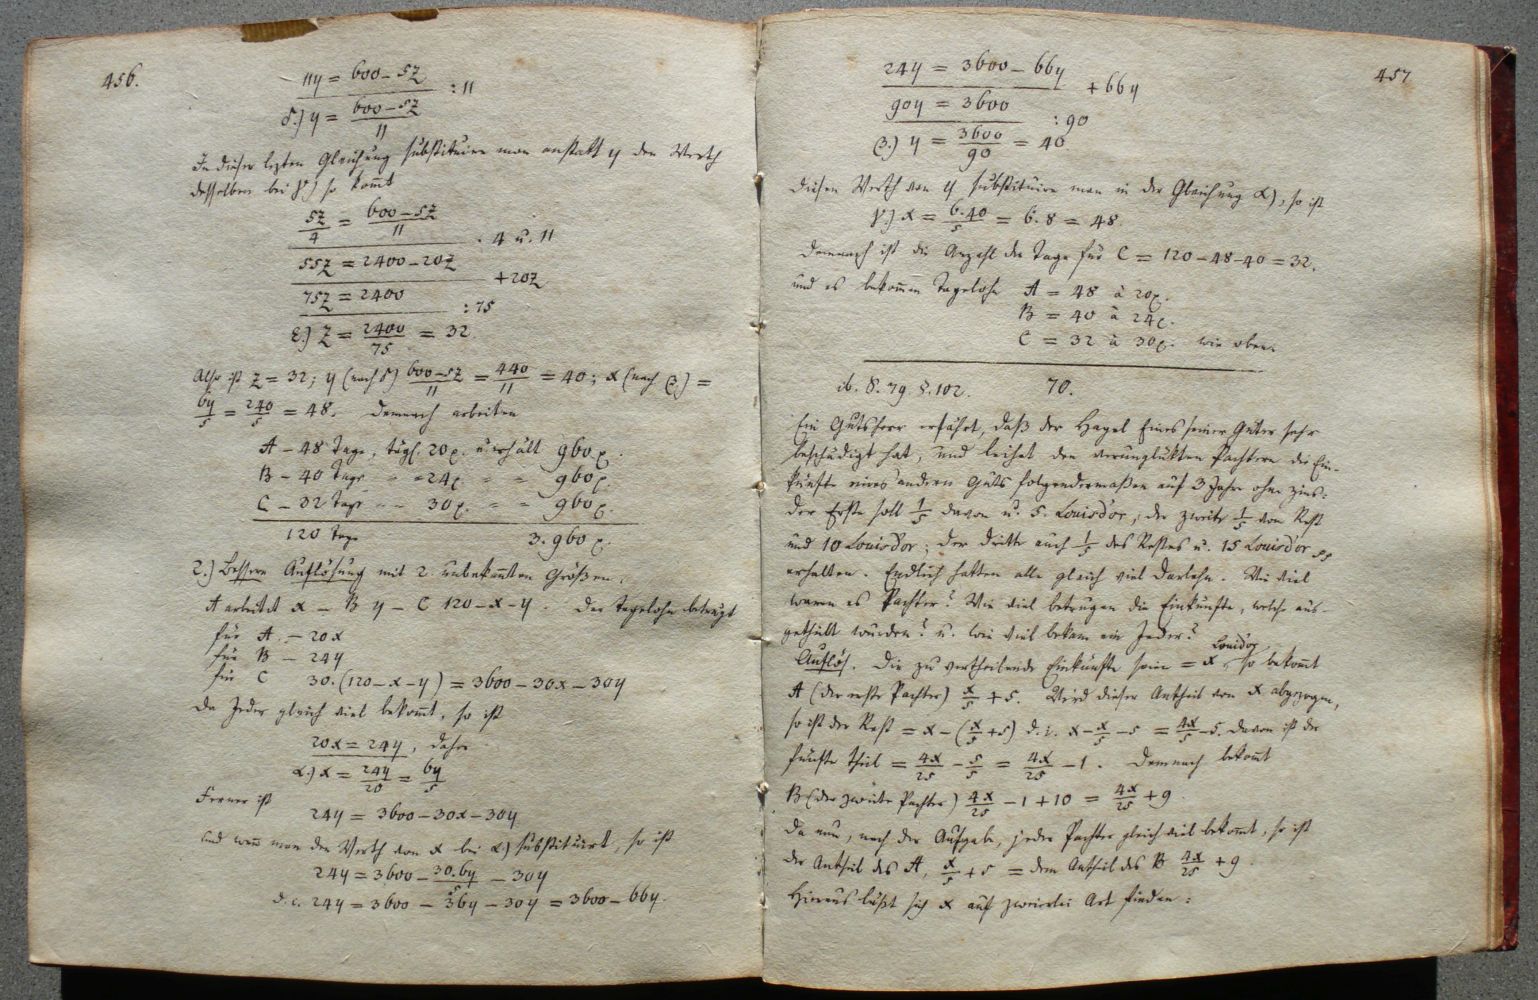 456.
11y = 600 – 5z
: 11
δ.) y = 600 – 5z / 11
In dieser lezten Gleichung substituire man anstatt y den Werth
desselben bei γ) so kom̅t
5z/4 = 600 – 5z / 11
· 4 u. 11
55z = 2400 – 20z
+ 20z
75z = 2400
: 75
ε.) z = 2400/75 = 32
Also ist z = 32; y (nach δ) 600–5z/11 = 440/11 = 40; x (nach β.) =
6y/5 = 240/5 = 48. Demnach arbeiten
A – 48 Tage, tägl. 20 u. erhält 960
B – 40 Tage – = 24 " " 960
C – 32 Tage – – 30 " " 960
120 Tage 3. 960
2.) Bessere Auflösung mit 2. unbekannten Größen.
A arbeitet x – B y – C 120 – x – y. Der Tagelohn beträgt
für A – 20x
für B – 24y
für C 30. (120 – x – y) = 3600 – 30x – 30y
Da Jeder gleich viel bekom̅t, so ist
20x = 24y, daher
α.) x = 24y/20 = 6y/5
Ferner ist
24y = 3600 – 30x – 30y
Und wen̅ man den Werth von x bei α) substituirt, so ist
24y = 3600 – 30.6y/5 – 30y
d. i. 24y = 3600 – 36y – 30y = 3600 – 66y.
457
24y = 3600 – 66y
+ 66y
90y = 3600
: 90
β.) y = 3600/90 = 40
Diesen Werth von y substituire man in der Gleichung α), so ist
γ.) x = 6.40/5 = 6.8 = 48.
Demnach ist die Anzahl der Tage für C = 120 – 48 – 40 = 32.
und es bekom̅en Tagelohn A = 48 à 20
B = 40 à 24
C = 32 à 30 wie oben.
ib. S. 79. §. 102. 70.
Ein Gutsherr erfährt, daß der Hagel Eines seiner Güter sehr
beschädigt hat, und leihet den verunglükten Pachtern die Ein-
künfte eines andern Guts folgendermaßen auf 3 Jahre ohne Zins:
Der Erste soll 1/5 davon u. 5. Louisd'or, der zweite 1/5 vom Rest
und 10 Louisd'or; der Dritte auch 1/5 des Restes u. 15 Louisd'or
erhalten. Endlich hatten alle gleich viel Darlehn. Wie viel
waren es Pachter? Wie viel betrugen die Einkünfte, welche aus-
getheilt wurden? u. wie viel bekam ein Jeder?
Auflös. Die zu vertheilende Einkünfte seien = x Louisd'or, so bekom̅t
A (der erste Pachter) x/5 + 5. Wird dieser Antheil von x abgezogen,
so ist der Rest = x – (x/5 + 5) d. i. x – x/5 – 5 = 4x/5 – 5. Davon ist der
fünfte Theil = 4x/25 – 5/5 = 4x/25 – 1. Demnach bekom̅t
B (der zweite Pachter) 4x/25 – 1 + 10 = 4x/25 + 9.
Da nun, nach der Aufgabe, jeder Pachter gleich viel bekom̅t, so ist
der Antheil des A, x/5 + 5 = dem Antheil des B 4x/25 + 9.
Hieraus läßt sich x auf zweierlei Art finden: